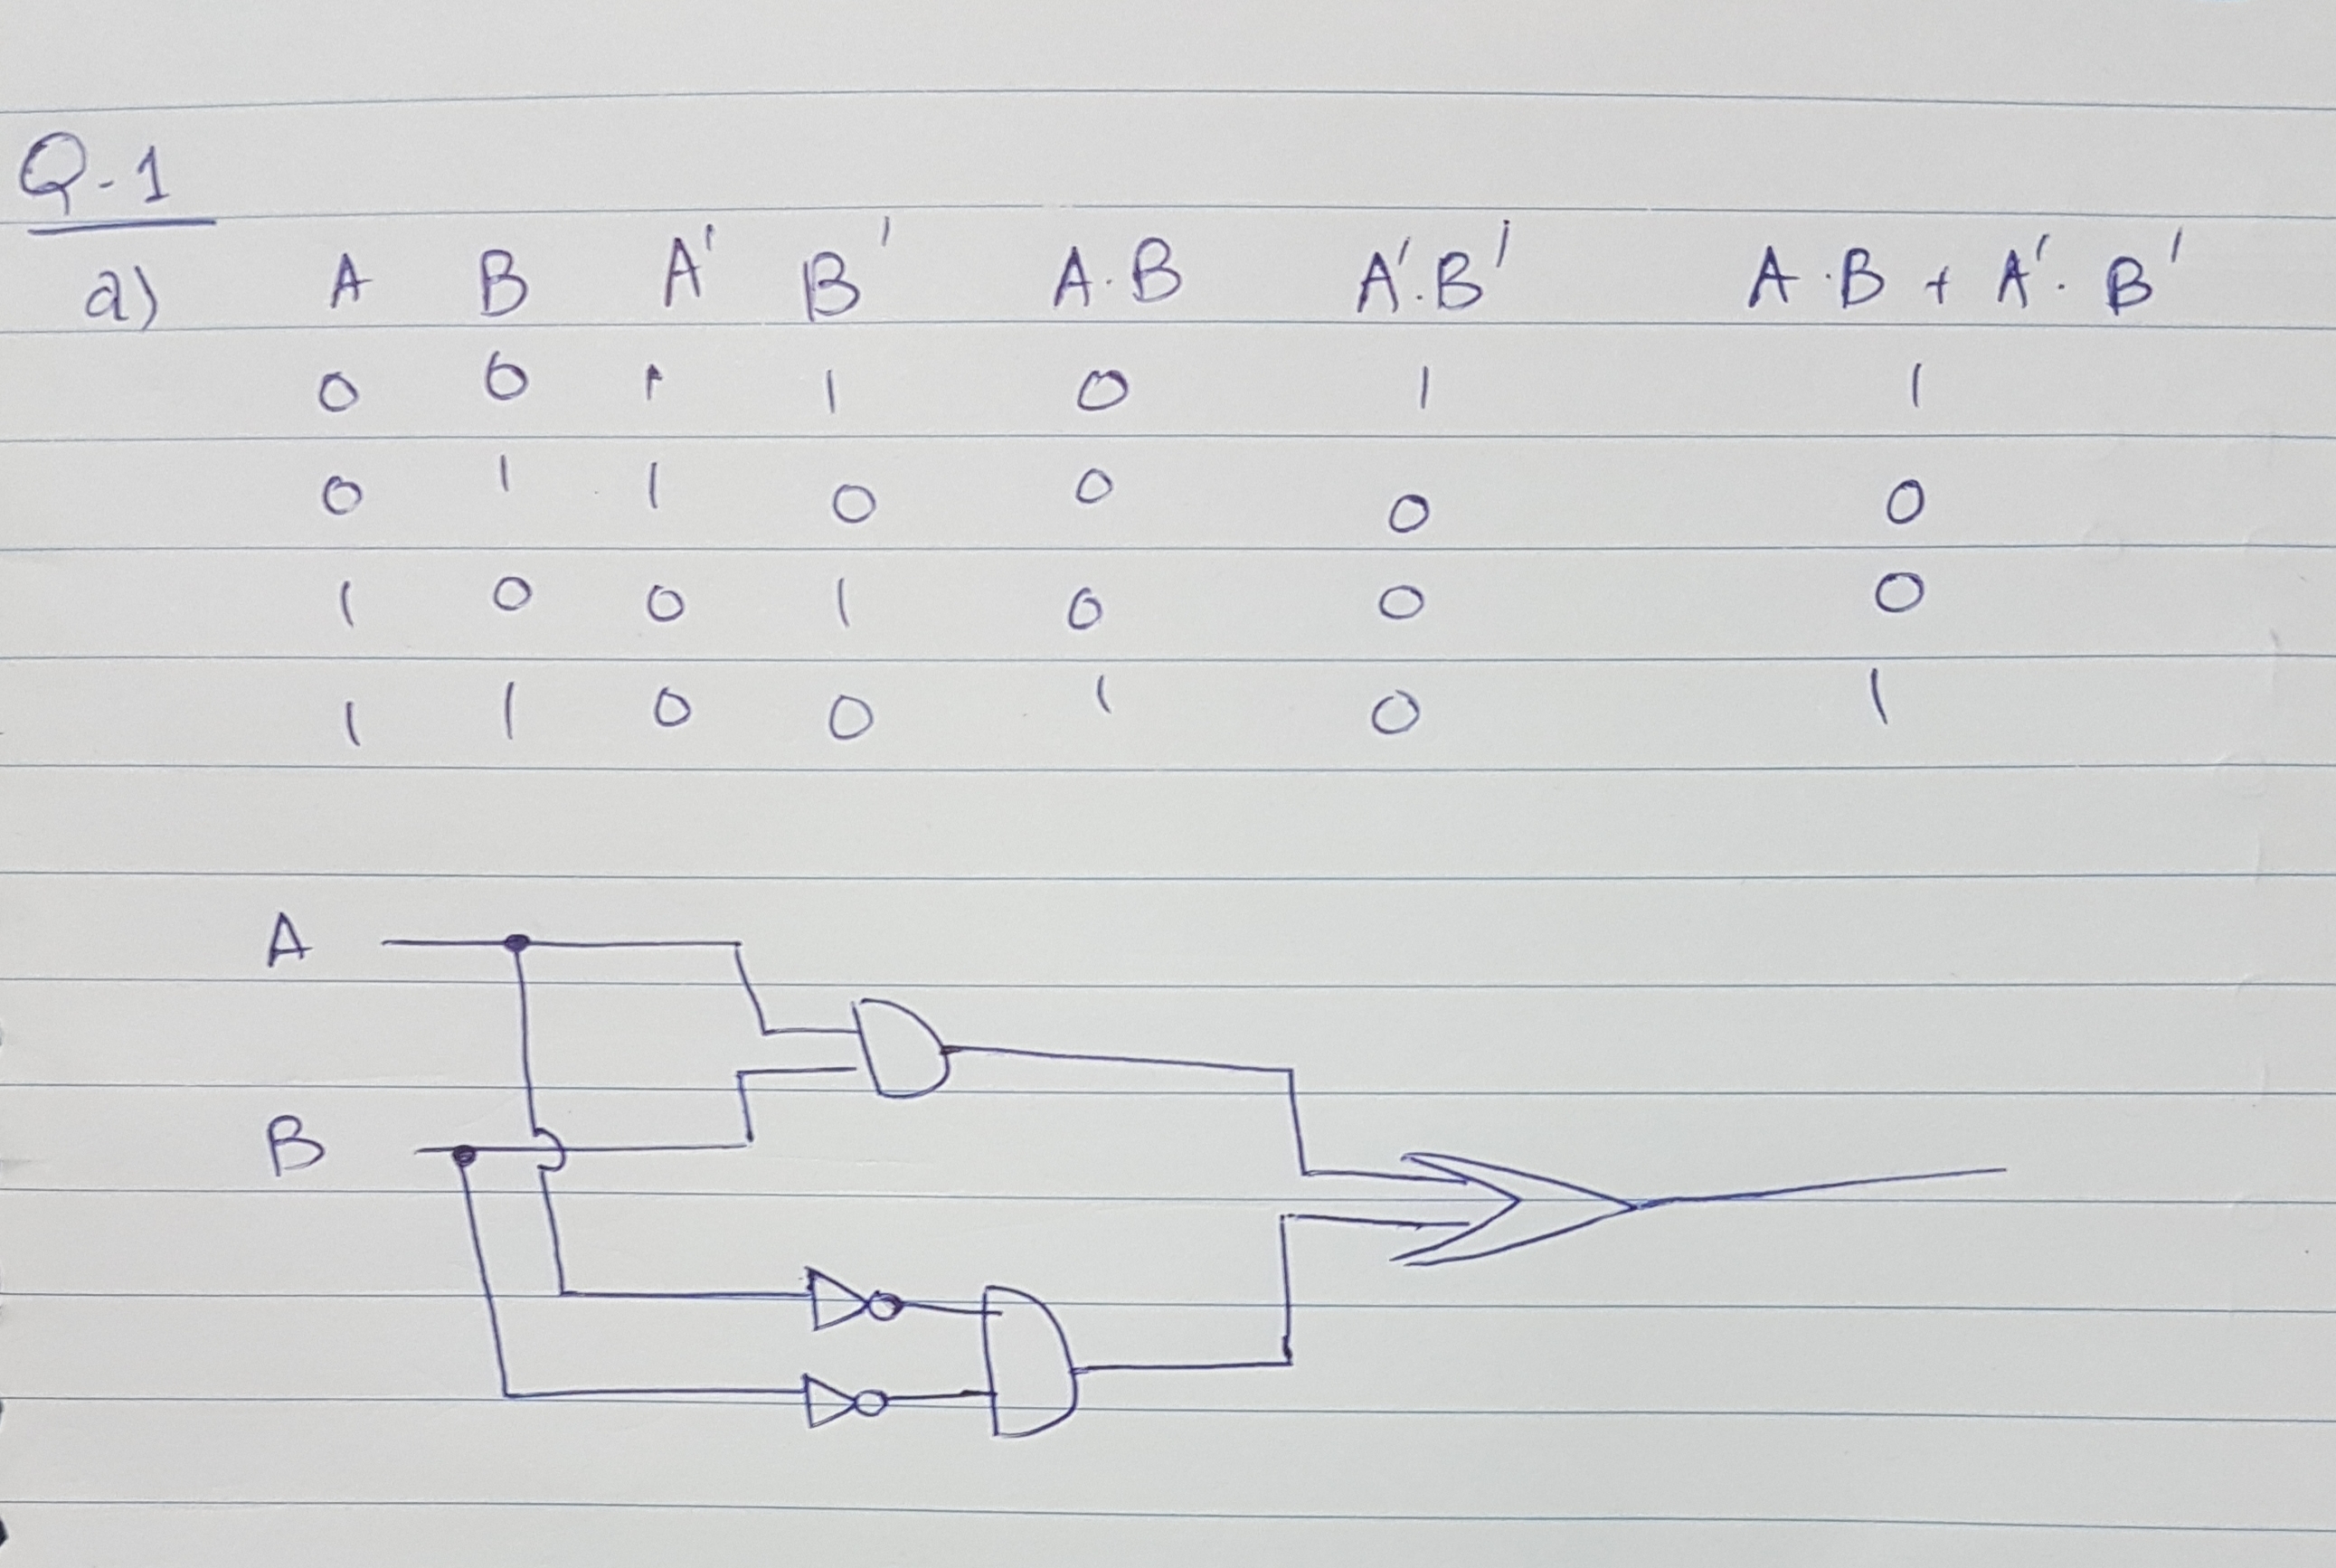 Q-1
a) A B A' B' A.B A'.B' A.B + A'.B'
0 0 1 1 0 1 1
0 1 1 0 0 0 0
1 0 0 1 0 0 0
1 1 0 0 1 0 1
A
B